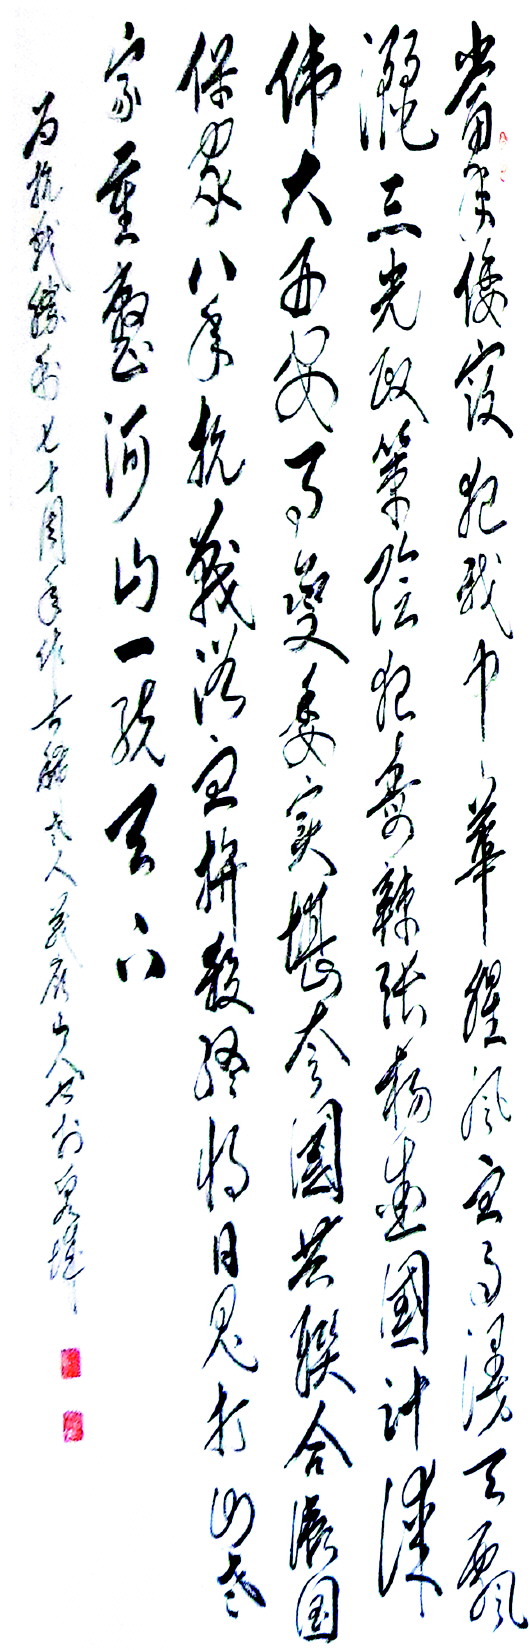 当年倭寇犯我中华腥风血雨漫天飘
洒三光政策阴狠毒辣张杨爱国计谋
伟大西安事变委实堪夸国共联合报国
保家八年抗战浴血拼杀终将日鬼打回老
家重整河山一统天下
为抗战胜利七十周年作 老人 山人